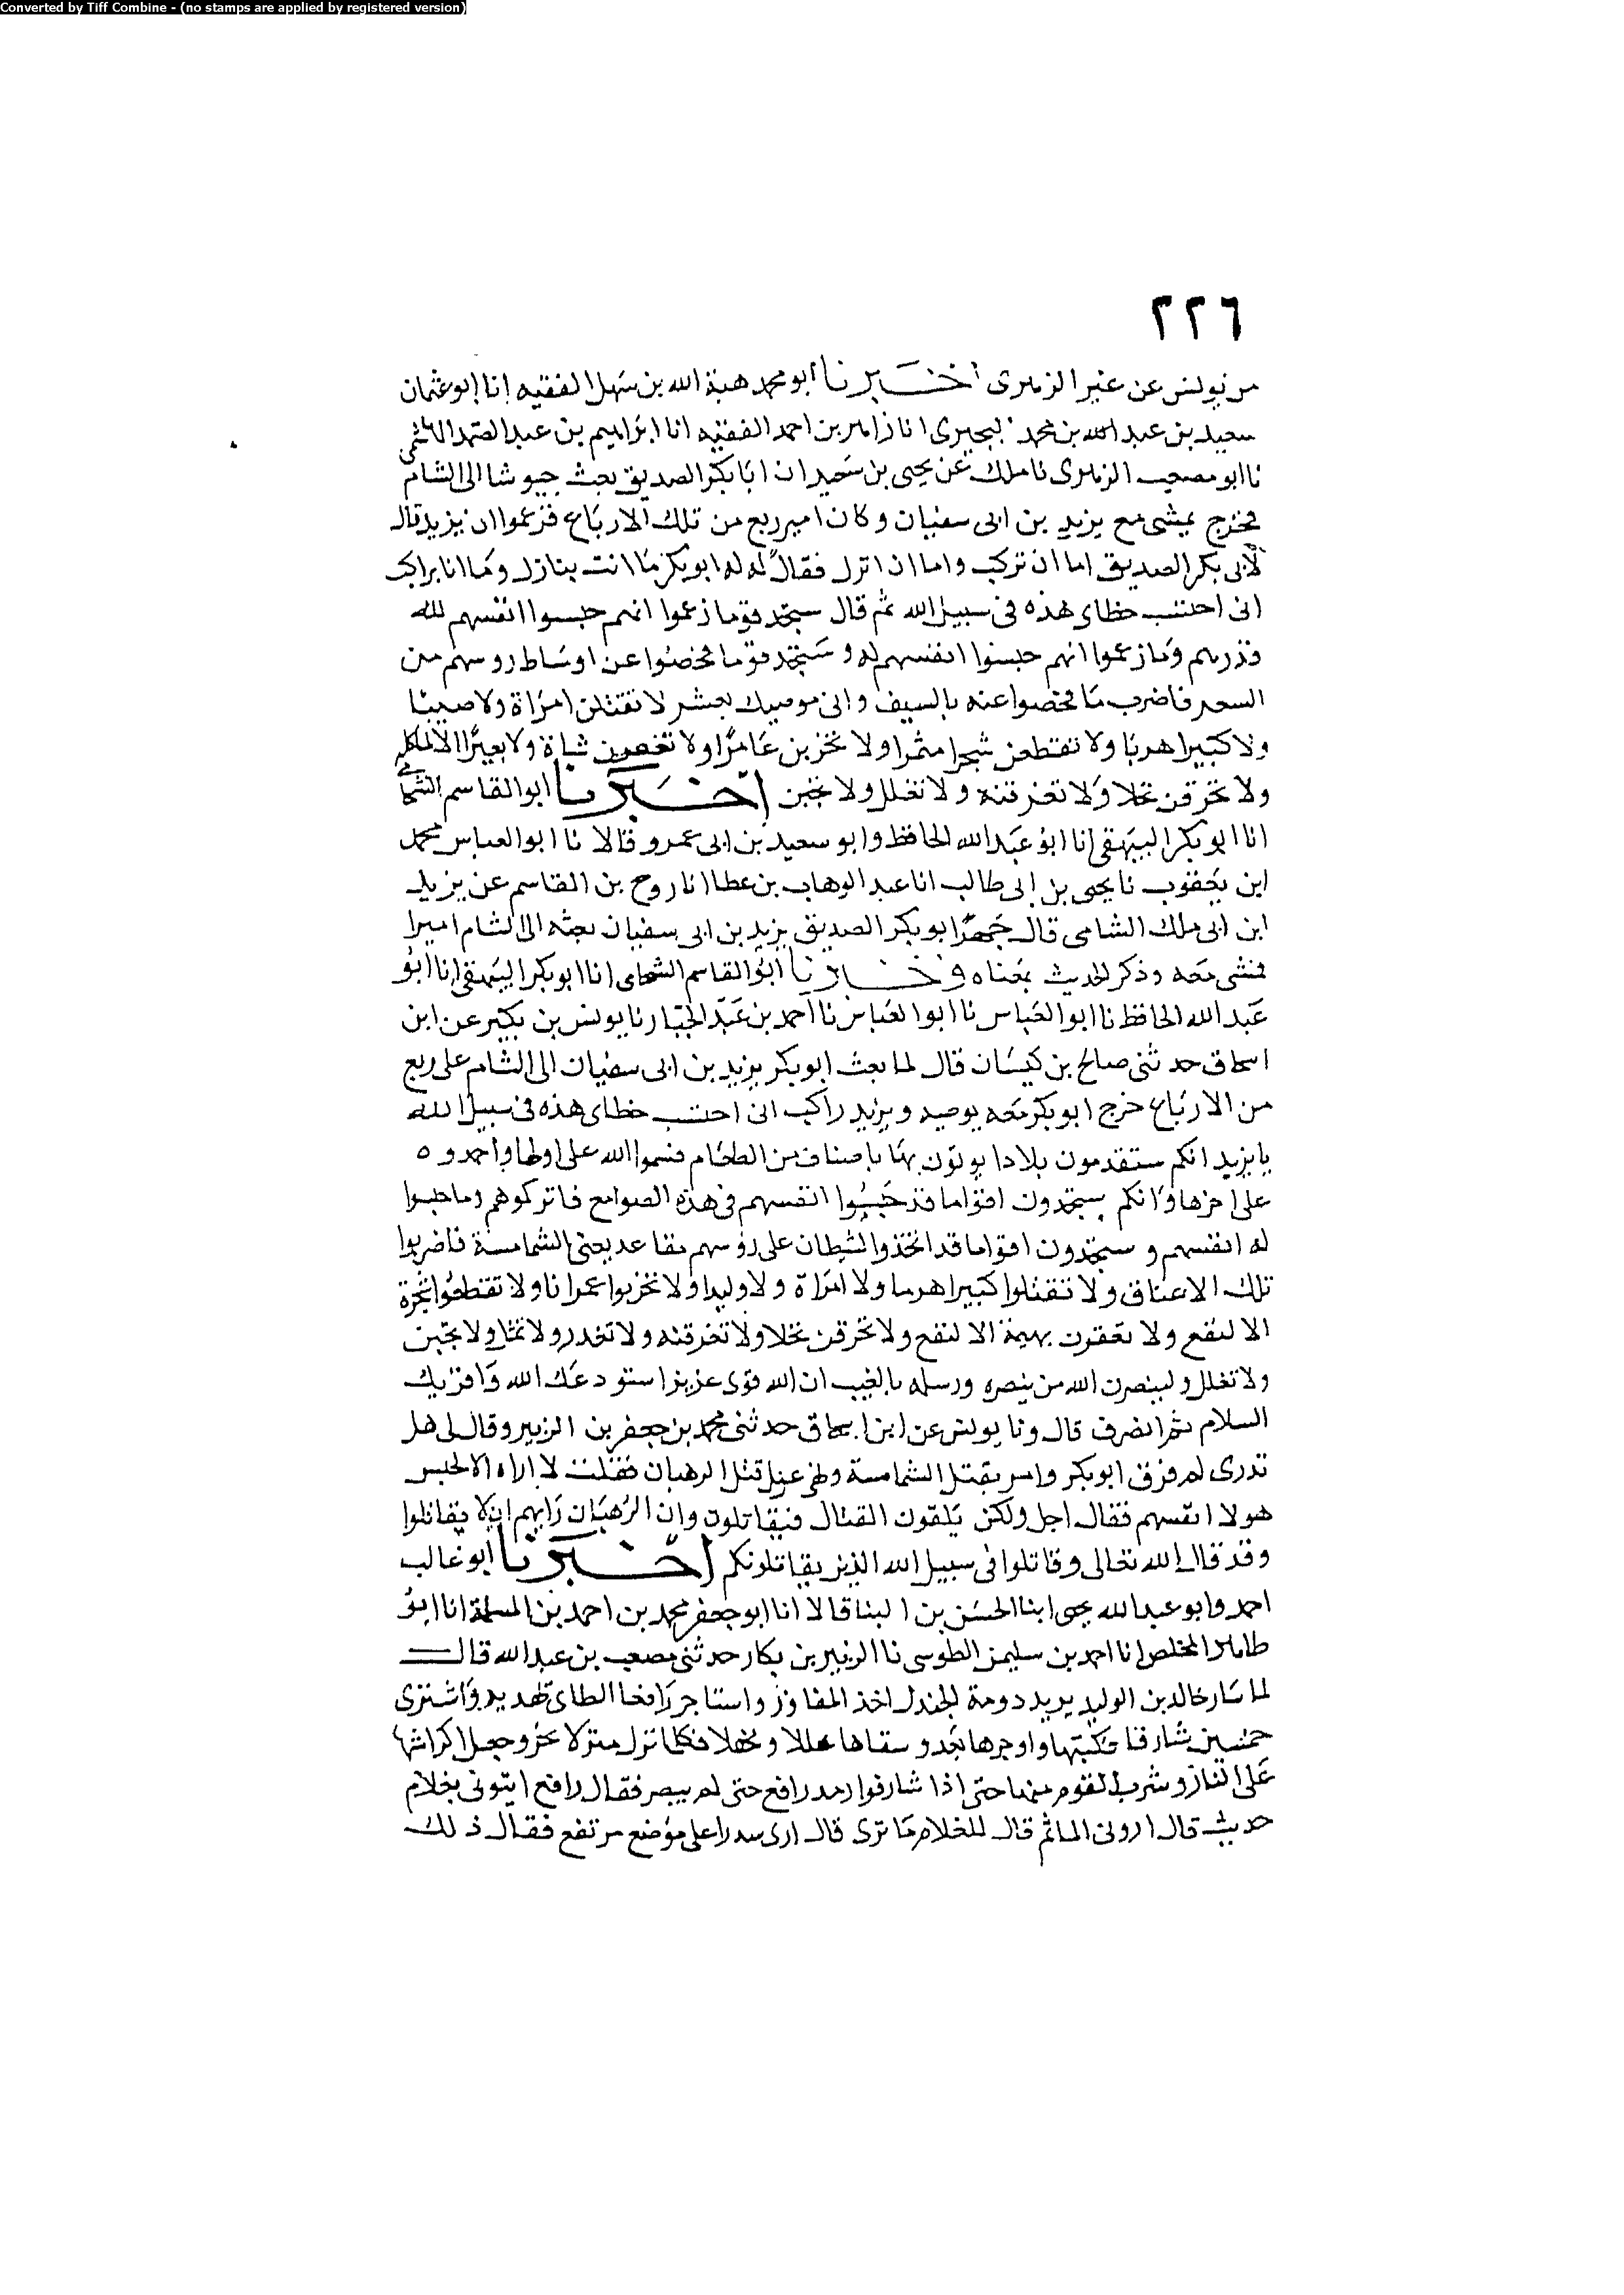 Converted by Tiff Combine - (no stamps are applied by registered version)
٢٢٦
من يونس عن غير الزهرى اخبرنا ابو محمد هبة الله بن سهل الفقيه انا ابو عثمان
سعيد بن عبد الله بن محمد البحيرى انا زاهر بن احمد الفقيه انا ابراهيم بن عبد الصمد الهاشمى
نا ابو مصعب الزهرى نا ملك عن يحيى بن سعيد ان ابا بكر الصديق بعث جيوشا الى الشام
فخرج يمشى مع يزيد بن ابى سفيان وكان امير ربع من تلك الارباع فزعموا ان يزيد قال
لابى بكر الصديق اما ان تركب واما ان انزل فقال له له ابو بكر ما انت بنازل وما انا براكب
انى احتسب خطاى هذه فى سبيل الله ثم قال ستجد قوما زعموا انهم حبسوا انفسهم لله
فذرهم وما زعموا انهم حبسوا انفسهم له وستجد قوما فحصوا عن اوساط روسهم من
السعر فاضرب ما فحصوا عنه بالسيف وانى موصيك بعشر لا تقتلن امراة ولا صبيا
ولا كبيرا هرما ولا تقطعن شجرا مثمرا ولا تخربن عامرا ولا تعقرن شاة ولا بعيرا الا لماكله
ولا تحرقن نخلا ولا تغرقنه ولا تغلل ولا تجبن اخبرنا ابو القاسم الشحامى
انا ابو بكر البيهقى انا ابو عبد الله الحافظ وابو سعيد بن ابى عمرو قالا نا ابو العباس محمد
ابن يعقوب نا يحيى بن ابى طالب انا عبد الوهاب بن عطا انا روح بن القاسم عن يزيد
ابن ابى ملك الشامى قال جهز ابو بكر الصديق يزيد بن ابى سفيان بعثه الى الشام اميرا
فمشى معه وذكر الحديث بمعناه واخبرنا ابو القاسم الشحامى انا ابو بكر البيهقى انا ابو
عبد الله الحافظ نا ابو العباس نا ابو العباس نا احمد بن عبد الجبار نا يونس بن بكير عن ابن
اسحاق حدثنى صالح بن كيسان قال لما بعث ابو بكر يزيد بن ابى سفيان الى الشام على ربع
من الارباع خرج ابو بكر معه يوصيه ويزيد راكب انى احتسب خطاى هذه فى سبيل الله
يا يزيد انكم ستقدمون بلادا يوتون بها باصناف من الطعام فسموا الله على اولها واحمدوه
على اخرها وانكم ستجدون اقواما قد حبسوا انفسهم فى هذه الصوامع فاتركوهم وما حبسوا
له انفسهم وستجدون اقواما قد اتخذ الشيطان على روسهم مقاعد يعنى الشمامسة فاضربوا
تلك الاعناق ولا تقتلوا كبيرا هرما ولا امراة ولا وليدا ولا تخربوا عمرانا ولا تقطعوا شجرة
الا لنفع ولا تعقرن بهيمة الا لنفع ولا تحرقن نخلا ولا تغرقنه ولا تغدر ولا تمثل ولا تجبن
ولا تغلل ولينصرن الله من ينصره ورسله بالغيب ان الله قوى عزيز استودعك الله واقريك
السلام ثم انصرف قال ونا يونس عن ابن اسحاق حدثنى محمد بن جعفر بن الزبير وقال لى هل
تدرى لم فرق ابو بكر وامر بقتل الشمامسة ونهى عن قتل الرهبان فقلت لا اراه الا لحبس
هولا انفسهم فقال اجل ولكن يلقون القتال فيقاتلون وان الرهبان رايهم ان لا يقاتلوا
وقد قال الله تعالى وقاتلوا فى سبيل الله الذين يقاتلونكم اخبرنا ابو غالب
احمد وابو عبد الله يحيى ابنا الحسن بن البنا قالا انا ابو جعفر محمد بن احمد بن المسلمة انا ابو
طاهر المخلص انا احمد بن سليمن الطوسى نا الزبير بن بكار حدثنى مصعب بن عبد الله قال
لما سار خالد بن الوليد يريد دومة الجندل اخذ المفاوز واستاجر رافعا الطاى واشترى
خمسين شارفا وسقاها عللا ونهلا فكلما نزل منزلا نحر وجعل اكراشها
على النار وشرب القوم منها حتى اذا شارفوا رمد رافع حتى لم يبصر فقال رافع ايتونى بغلام
حديث قال ارونى الما ثم قال للغلام ما ترى قال ارى سدرا على موضع مرتفع فقال ذلك